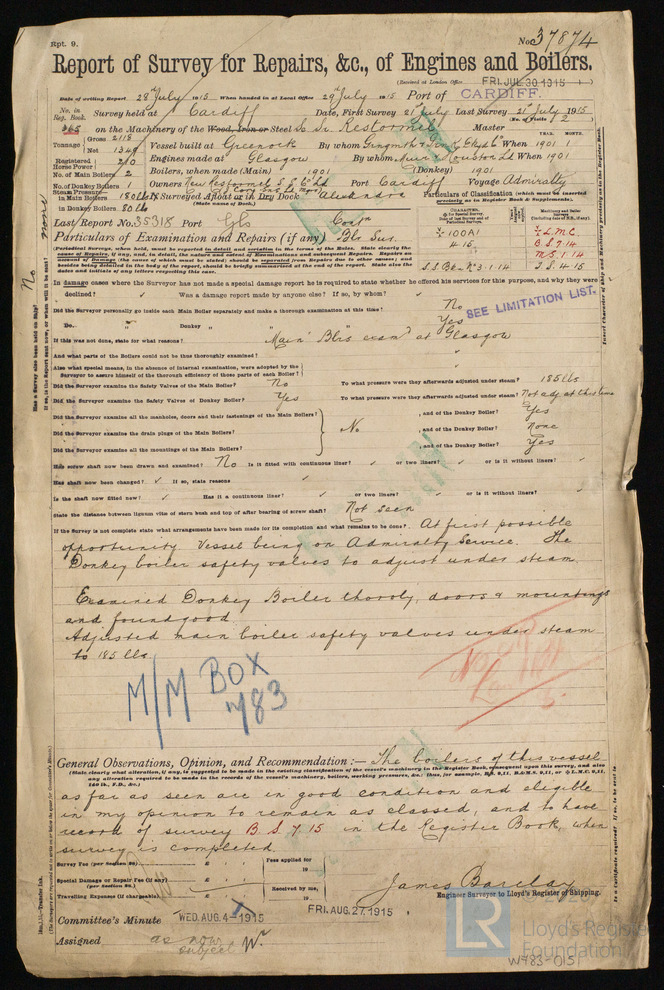 Rpt. 9.
No. 37874
Report of Survey for Repairs, &c., of Engines and Boilers.
(Received at London Office FRI. JUL 30 1915)
Date of writing Report 28 July 1915 When handed in at Local Office 29 July 1915 Port of CARDIFF.
No. in Reg. Book. Survey held at Cardiff Date, First Survey 21 July Last Survey 21 July 1915
(No. of Visits 2)
on the Machinery of the Wood, Iron or Steel S. Sr. Restormel Master
Tonnage Gross 2118 Net 1349 Vessel built at Greenock By whom When 1901 1
YEAR. MONTH.
Registered Horse Power 210 Engines made at Glasgow By whom Muir & Houston Ld When 1901
No. of Main Boilers 2 Boilers, when made (Main) 1901 (Donkey) 1901
No. of Donkey Boilers 1 Owners New Restormel S.S. Co Ld Port Cardiff Voyage Admiralty
Steam Pressure in Main Boilers 180 lb If Surveyed Afloat or in Dry Dock Alexandra
(State name of Dock.)
in Donkey Boilers 80 lb
Particulars of Classification (which must be inserted precisely as in Register Book & Supplements).
Last Report No. 35318 Port Gls
Particulars of Examination and Repairs (if any) Blr Sur.
100A1
4.15
S.S. No 3-1.14
L.M.C.
B.S. 7.14
M.S. 1.14
T.S. 4.15
In damage cases where the Surveyor has not made a special damage report he is required to state whether he offered his services for this purpose, and why they were
declined? Was a damage report made by anyone else? If so, by whom?
SEE LIMITATION LIST.
Did the Surveyor personally go inside each Main Boiler separately and make a thorough examination at this time? No
Do. " Donkey " " " " Yes
If this was not done, state for what reasons? Main Blrs examd at Glasgow
And what parts of the Boilers could not be thoroughly examined?
Also what special means, in the absence of internal examination, were adopted by the
Surveyor to assure himself of the thorough efficiency of those parts of each Boiler?
Did the Surveyor examine the Safety Valves of the Main Boiler? No To what pressure were they afterwards adjusted under steam? 185 lbs
Did the Surveyor examine the Safety Valves of Donkey Boiler? Yes To what pressure were they afterwards adjusted under steam? Not adj at this time
Did the Surveyor examine all the manholes, doors and their fastenings of the Main Boilers? , and of the Donkey Boiler? Yes
Did the Surveyor examine the drain plugs of the Main Boilers? No , and of the Donkey Boiler? none
Did the Surveyor examine all the mountings of the Main Boilers? , and of the Donkey Boiler? Yes
Has screw shaft now been drawn and examined? No Is it fitted with continuous liner? or two liners? or is it without liners?
Has shaft now been changed? If so, state reasons
Is the shaft now fitted new? Has it a continuous liner? or two liners? or is it without liners?
State the distance between lignum vitæ of stern bush and top of after bearing of screw shaft? Not seen
If the Survey is not complete state what arrangements have been made for its completion and what remains to be done? At first possible
opportunity. Vessel being on Admiralty Service. The
Donkey boiler safety valves to adjust under steam.
Examined Donkey Boiler thoroly, doors & mountings
and found good.
Adjusted main boiler safety valves under steam
to 185 lbs.
M/M BOX
783
General Observations, Opinion, and Recommendation:— The boilers of this vessel
as far as seen are in good condition and eligible
in my opinion to remain as classed, and to have
record of survey B.S. 7.15 in the Register Book, when
survey is completed.
Survey Fee (per Section 29) £ : :
Fees applied for 19
Special Damage or Repair Fee (if any) (per Section 28.) £ : :
Travelling Expenses (if chargeable) £ : :
Received by me, 19
James Barclay
Engineer Surveyor to Lloyd's Register of Shipping.
Committee's Minute WED. AUG. 4-1915 FRI. AUG. 27. 1915
Assigned as now subject
Lloyd's Register Foundation
LR
W783-0151